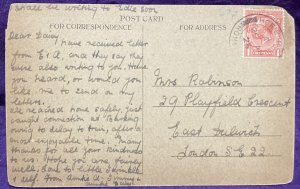 shall be writing to Edie soon
POST CARD
FOR CORRESPONDENCE
FOR ADDRESS
Dear Daisy
I have received letter
from E & A, and they say they
were also writing to you. Hope
you heard, or would you
like me to send on my
letters.
We reached home safely, just
caught connection at
delay to train, after a
most enjoyable time. Many
thanks for all your kindness
to us. Hope you are fairly
well, Love to little
& self. from
Mrs Robinson
29 Playfield Crescent
East Dulwich
London S.E 22